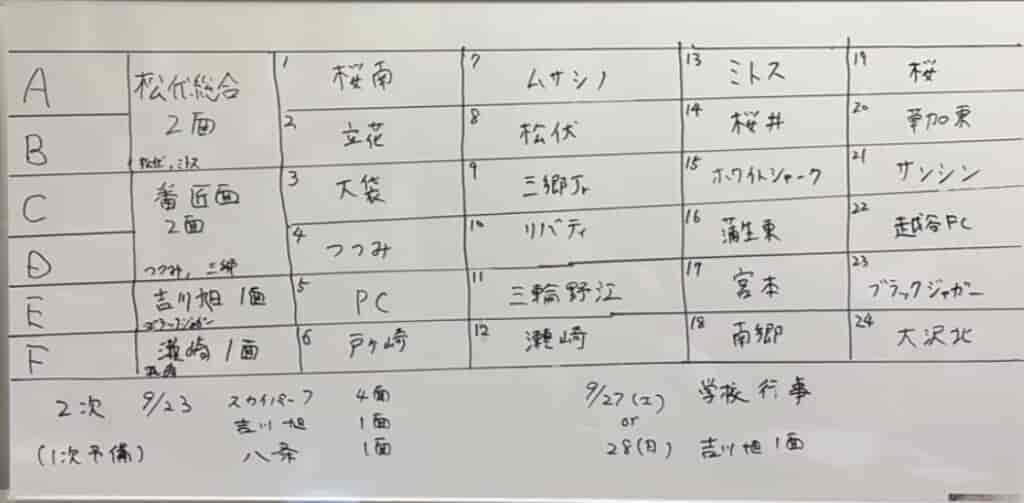 A 松代総合 1 桜南 7 ムサシノ 13 ミトス 19 桜
B 2面 2 立花 8 松伏 14 桜井 20 草加東
松伏,ミトス
C 番匠面 3 大袋 9 三郷Jr 15 ホワイトシャーク 21 サンシン
D 2面 4 つつみ 10 リバティ 16 蒲生東 22 越谷FC
つつみ, 三郷
E 吉川旭 1面 5 PC 11 三輪野江 17 宮本 23 ブラックジャガー
ブラックジャガー
F 瀬崎 1面 6 戸ヶ崎 12 瀬崎 18 南郷 24 大沢北
2次 9/23 スカイパーク 4面 9/27(土) 学校行事
吉川旭 1面 or
(1次予備) 八条 1面 28(日) 吉川旭 1面